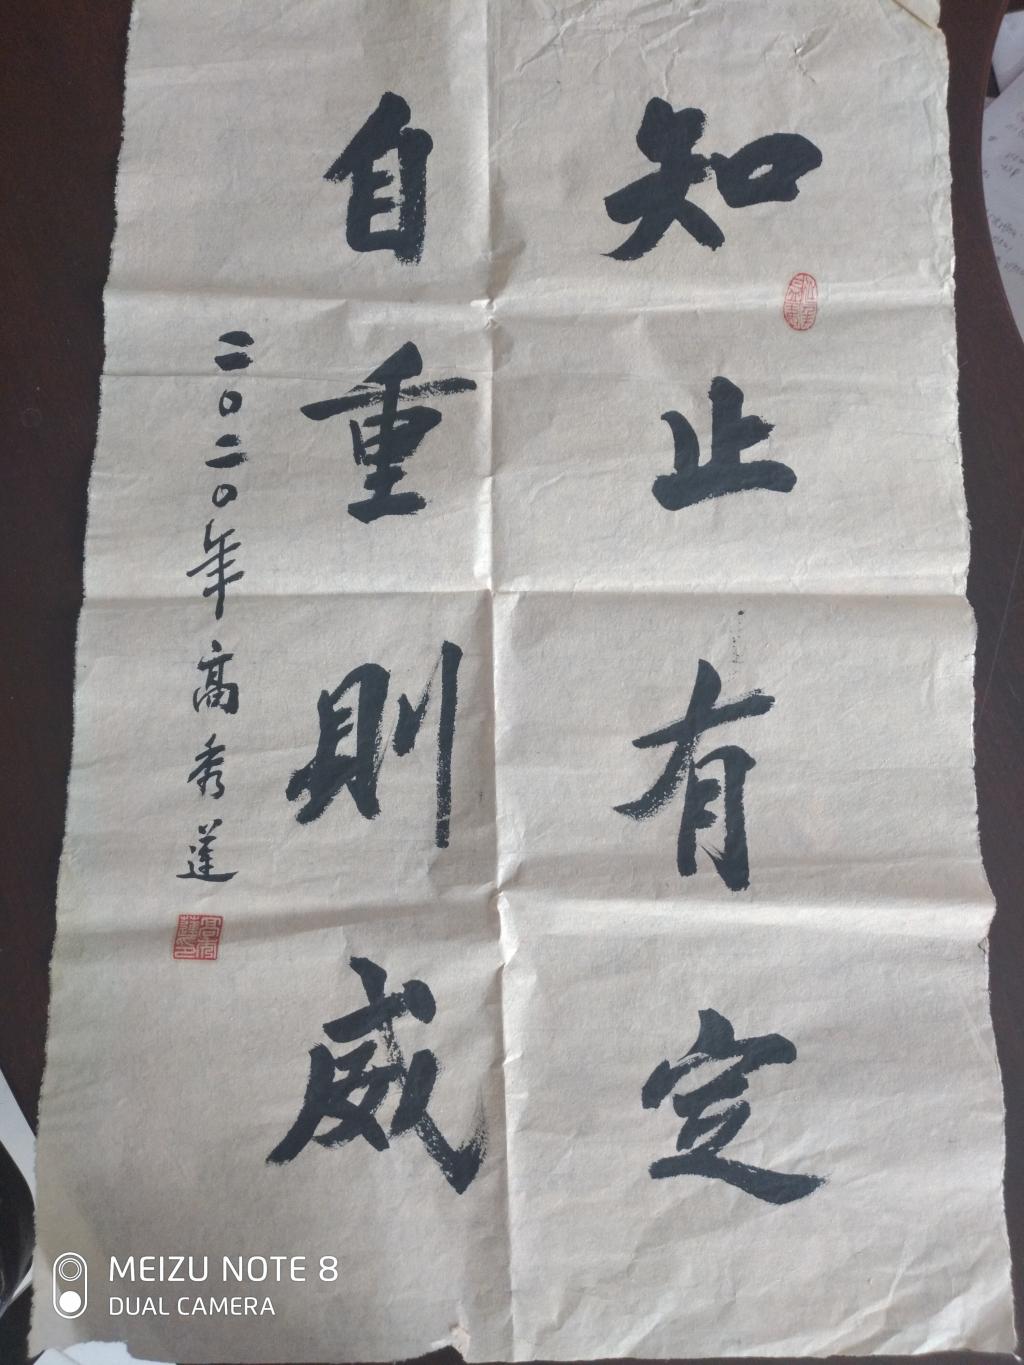 知止有定
自重則威
二〇二〇年高秀蓮
MEIZU NOTE 8
DUAL CAMERA